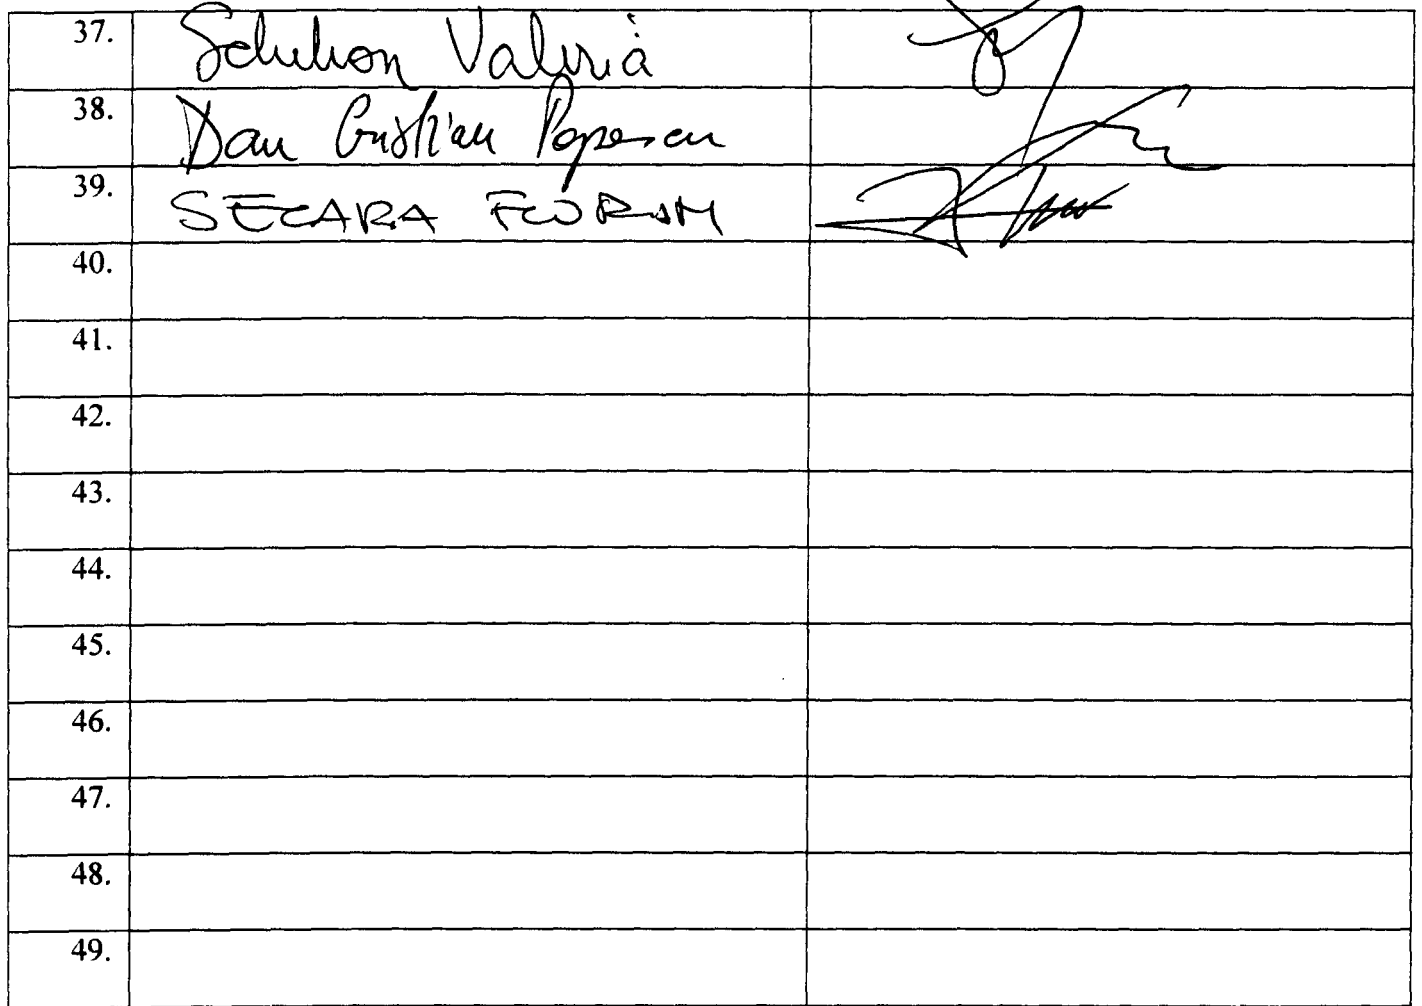 37. Schelean Valeria
38. Dan Cristian Popescu
39. SECARA FLORIN
40.
41.
42.
43.
44.
45.
46.
47.
48.
49.